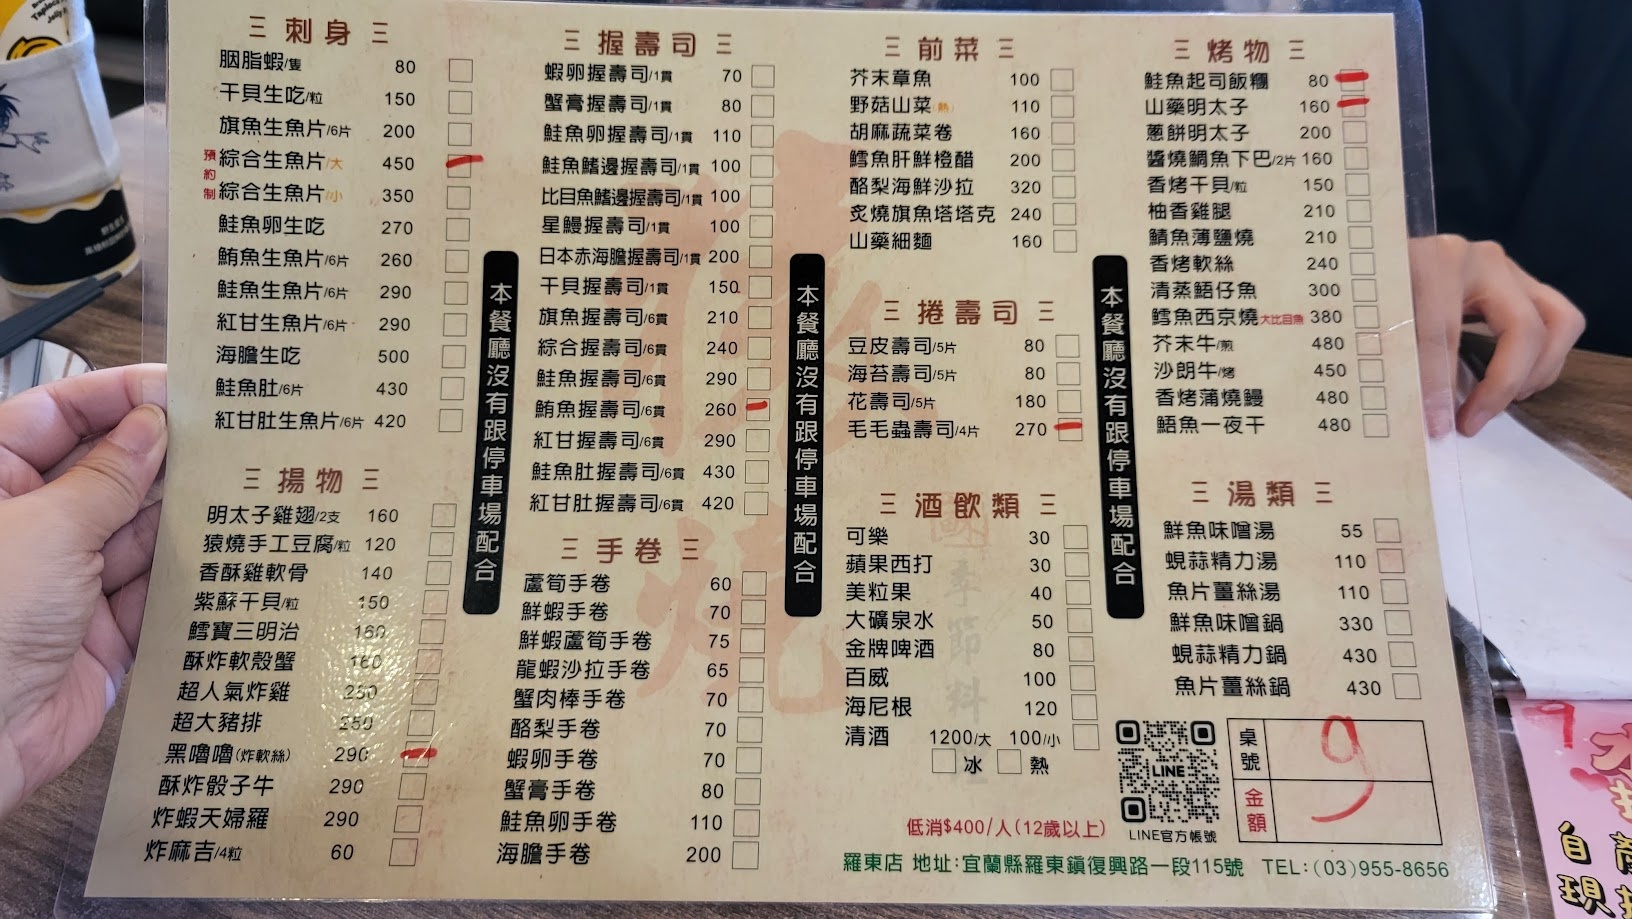 三 刺身 三
胭脂蝦/隻 80
干貝生吃/粒 150
旗魚生魚片/6片 200
預約制
綜合生魚片/大 450
綜合生魚片/小 350
鮭魚卵生吃 270
鮪魚生魚片/6片 260
鮭魚生魚片/6片 290
紅甘生魚片/6片 290
海膽生吃 500
鮭魚肚/6片 430
紅甘肚生魚片/6片 420
三 揚物 三
明太子雞翅/2支 160
猿燒手工豆腐/粒 120
香酥雞軟骨 140
紫蘇干貝/粒 150
鱈寶三明治 160
酥炸軟殼蟹 160
超人氣炸雞 250
超大豬排 250
黑嚕嚕(炸軟絲) 290
酥炸骰子牛 290
炸蝦天婦羅 290
炸麻吉/4粒 60
本餐廳沒有跟停車場配合
三 握壽司 三
蝦卵握壽司/1貫 70
蟹膏握壽司/1貫 80
鮭魚卵握壽司/1貫 110
鮭魚鰭邊握壽司/1貫 100
比目魚鰭邊握壽司/1貫 100
星鰻握壽司/1貫 100
日本赤海膽握壽司/1貫 200
干貝握壽司/1貫 150
旗魚握壽司/6貫 210
綜合握壽司/6貫 240
鮭魚握壽司/6貫 290
鮪魚握壽司/6貫 260
紅甘握壽司/6貫 290
鮭魚肚握壽司/6貫 430
紅甘肚握壽司/6貫 420
三 手卷 三
蘆筍手卷 60
鮮蝦手卷 70
鮮蝦蘆筍手卷 75
龍蝦沙拉手卷 65
蟹肉棒手卷 70
酪梨手卷 70
蝦卵手卷 70
蟹膏手卷 80
鮭魚卵手卷 110
海膽手卷 200
本餐廳沒有跟停車場配合
三 前菜 三
芥末章魚 100
野菇山菜(熱) 110
胡麻蔬菜卷 160
鱈魚肝鮮橙醋 200
酪梨海鮮沙拉 320
炙燒旗魚塔塔克 240
山藥細麵 160
三 捲壽司 三
豆皮壽司/5片 80
海苔壽司/5片 80
花壽司/5片 180
毛毛蟲壽司/4片 270
三 酒飲類 三
可樂 30
蘋果西打 30
美粒果 40
大礦泉水 50
金牌啤酒 80
百威 100
海尼根 120
清酒 1200/大 100/小
冰 熱
本餐廳沒有跟停車場配合
三 烤物 三
鮭魚起司飯糰 80
山藥明太子 160
蔥餅明太子 200
醬燒鯛魚下巴/2片 160
香烤干貝/粒 150
柚香雞腿 210
鯖魚薄鹽燒 210
香烤軟絲 240
清蒸鯃仔魚 300
鱈魚西京燒大比目魚 380
芥末牛/煎 480
沙朗牛/烤 450
香烤蒲燒鰻 480
鯃魚一夜干 480
三 湯類 三
鮮魚味噌湯 55
蜆蒜精力湯 110
魚片薑絲湯 110
鮮魚味噌鍋 330
蜆蒜精力鍋 430
魚片薑絲鍋 430
LINE
LINE官方帳號
桌號 9
金額
低消$400/人(12歲以上)
羅東店 地址:宜蘭縣羅東鎮復興路一段115號 TEL:(03)955-8656
季節料
9
自
現